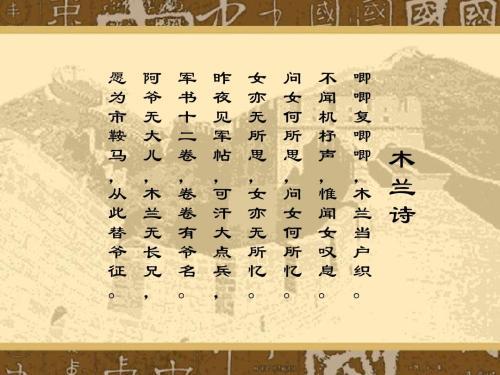 木兰诗
唧唧复唧唧,木兰当户织。
不闻机杼声,惟闻女叹息。
问女何所思,问女何所忆。
女亦无所思,女亦无所忆。
昨夜见军帖,可汗大点兵,
军书十二卷,卷卷有爷名。
阿爷无大儿,木兰无长兄,
愿为市鞍马,从此替爷征。